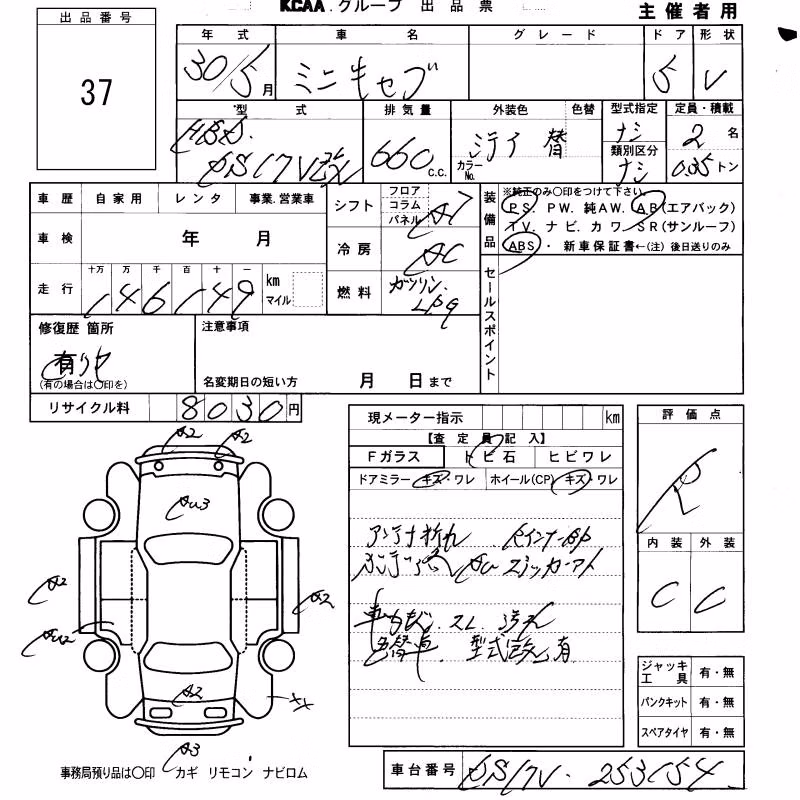 KCAA.グループ 出品票
主催者用
出品番号
37
年式 車名 グレード ドア 形状
30/5月 ミニキャブ 5 V
型式 排気量 外装色 色替 型式指定 定員・積載
HBD. DS17V改 660 c.c. カラーNo. 替 ナシ 2名
類別区分 ナシ 0.35トン
車歴 自家用 レンタ 事業.営業車
車検 年 月
走行 十万 万 千 百 十 一
146149 km マイル
シフト フロア コラム パネル AT
冷房 AC
燃料 ガソリン. LPG
装備品 ※純正のみ〇印をつけて下さい
PS. PW. 純AW. AB(エアバック)
TV. ナビ. カワ. SR(サンルーフ)
ABS・ 新車保証書←(注) 後日送りのみ
セールスポイント
修復歴 箇所
有りや
(有の場合は〇印を)
注意事項
名変期日の短い方 月 日まで
リサイクル料 8030円
現メーター指示 km
【査定員記入】
Fガラス トビ石 ヒビワレ
ドアミラー キズ・ワレ ホイール(CP) キズ・ワレ
アンテナ折れ
色替車. 型式改 有
評価点
R
内装 外装
C C
ジャッキ工具 有・無
パンクキット 有・無
スペアタイヤ 有・無
A2 A2
AU3
A2
AU2
A2
A2
XX
A3
事務局預り品は〇印 カギ リモコン ナビロム
車台番号 DS17V-253154